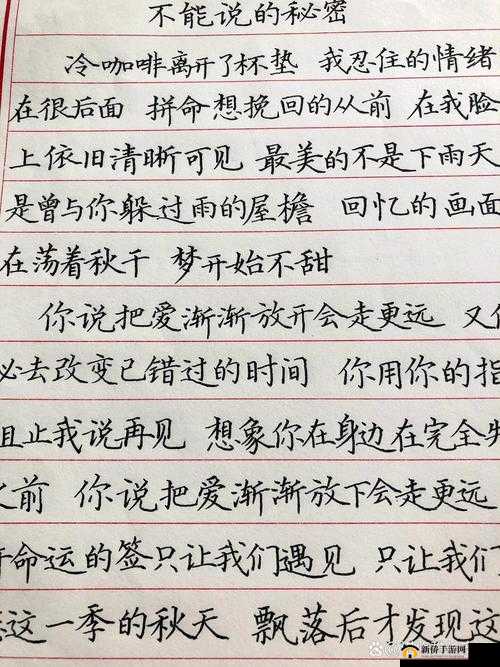 不能说的秘密
冷咖啡离开了杯垫 我忍住的情绪
在很后面 拼命想挽回的从前 在我脸
上依旧清晰可见 最美的不是下雨天
是曾与你躲过雨的屋檐 回忆的画面
在荡着秋千 梦开始不甜
你说把爱渐渐放开会走更远 又
必去改变已错过的时间 你用你的指
阻止我说再见 想象你在身边在完全失
之前 你说把爱渐渐放下会走更远
命运的签只让我们遇见 只让我们
这一季的秋天 飘落后才发现这
新侨手游网